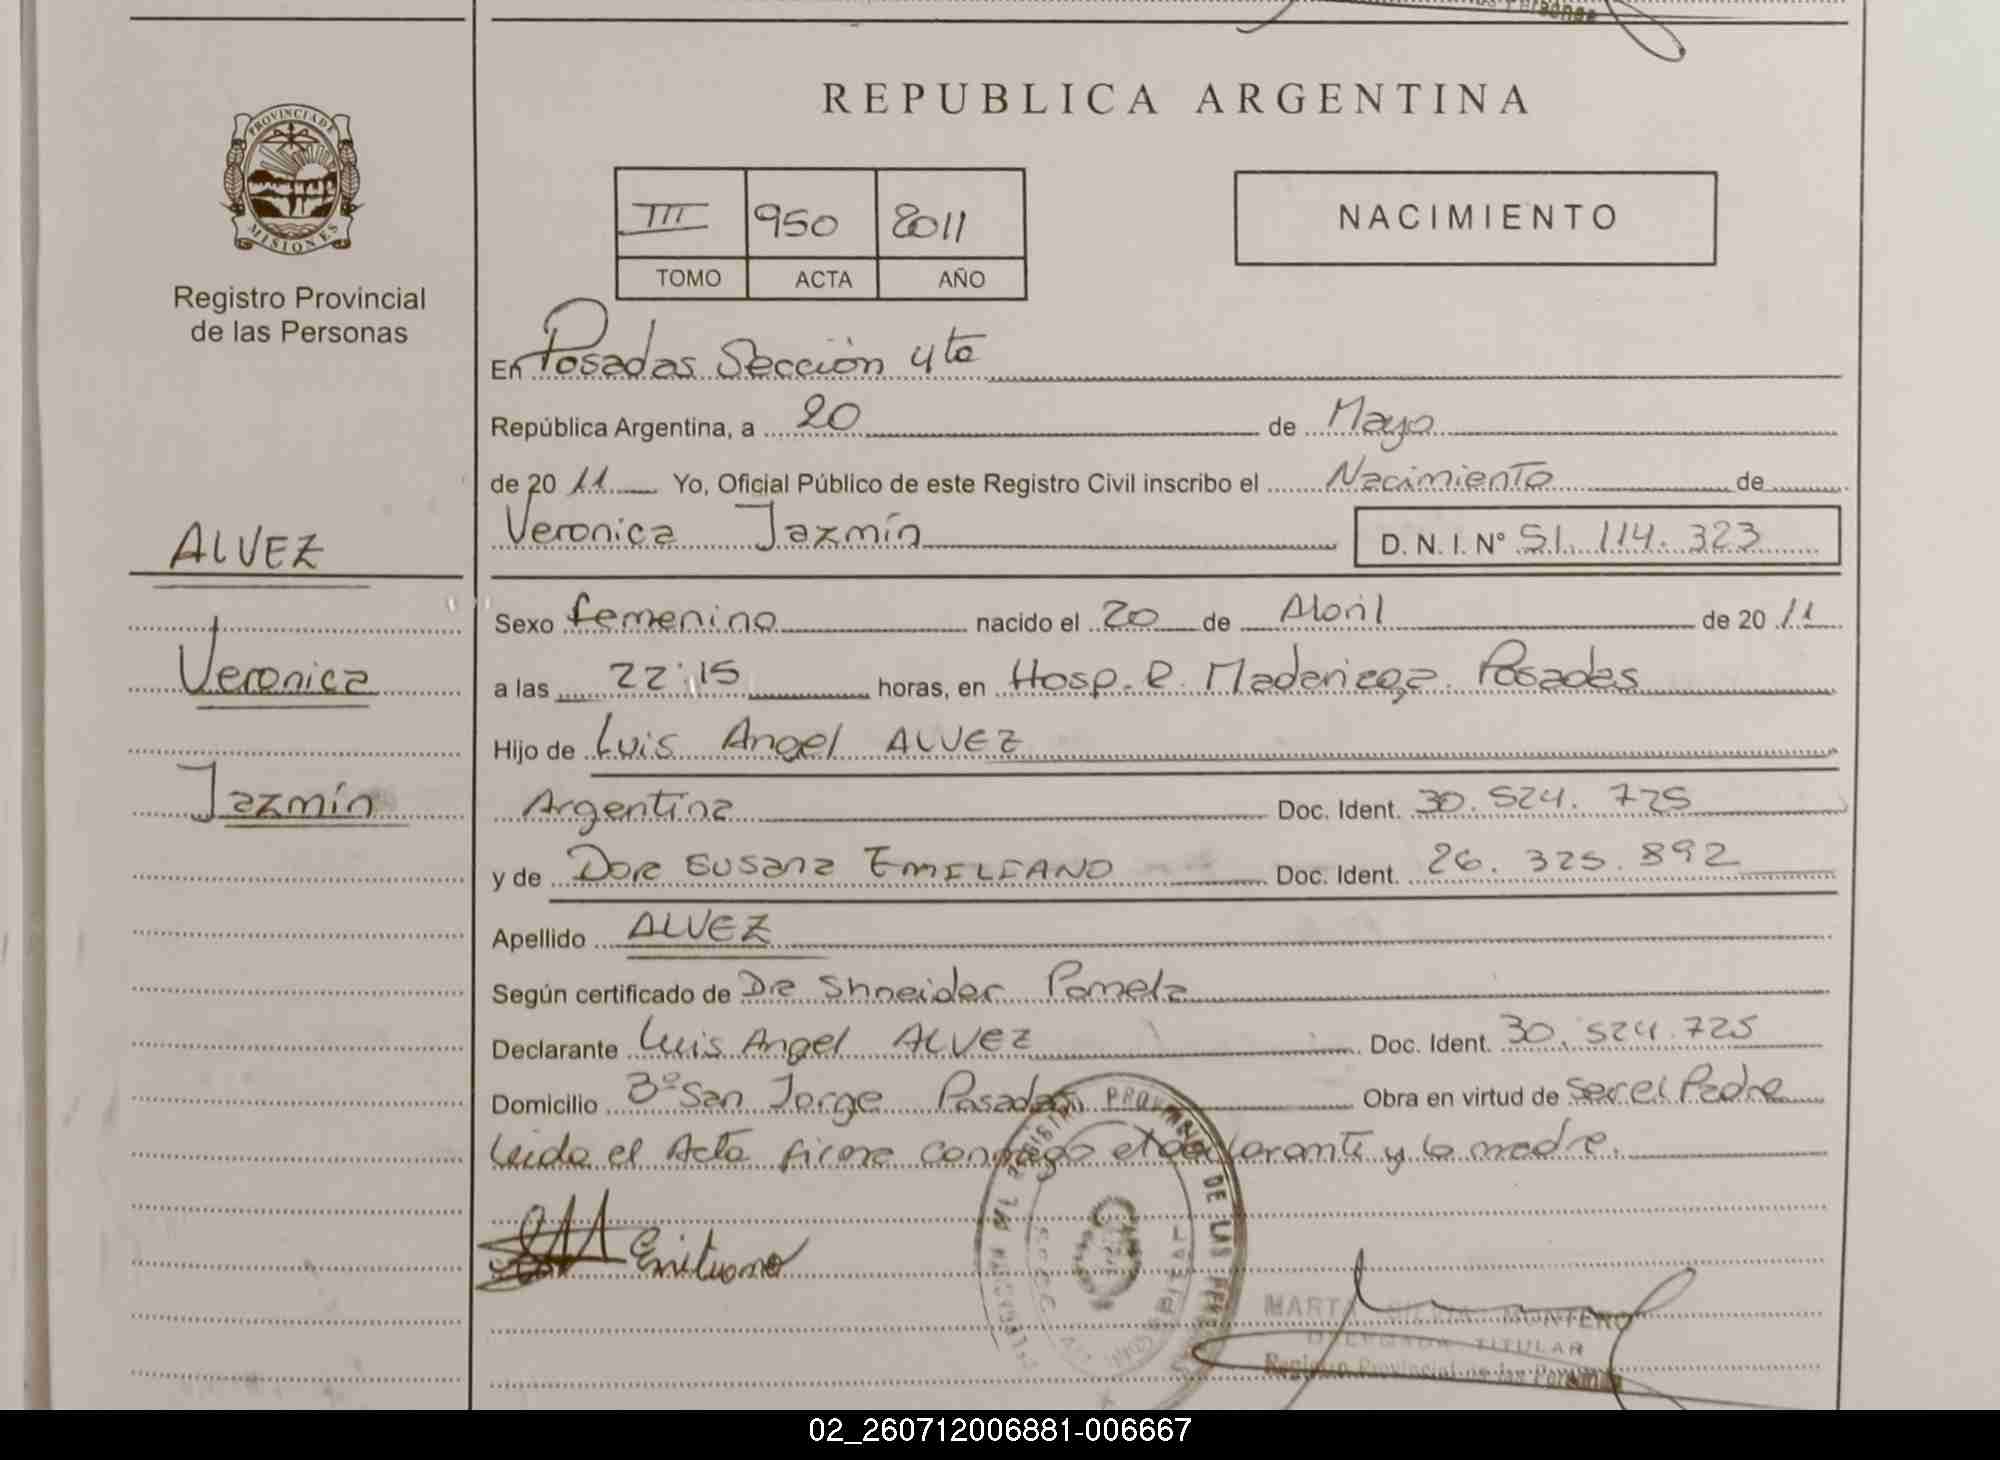 Persona
REPUBLICA ARGENTINA
PROVINCIA DE
MISIONES
Registro Provincial
de las Personas
III 950 2011
TOMO ACTA AÑO
NACIMIENTO
En Posadas Sección 4ta
República Argentina, a 20 de Mayo
de 20 11 Yo, Oficial Público de este Registro Civil inscribo el Nacimiento de
Veronica Jazmín D. N. I. N° 51. 114. 323
ALVEZ
Veronica
Jazmín
Sexo femenino nacido el 20 de Abril de 20 11
a las 22:15 horas, en Hosp. R. Madariaga. Posadas
Hijo de Luis Angel ALVEZ
Argentina Doc. Ident. 30. 524. 725
y de Dora Susana EMILIANO Doc. Ident. 26. 325. 892
Apellido ALVEZ
Según certificado de Dra Shneider Pamela
Declarante Luis Angel ALVEZ Doc. Ident. 30. 524. 725
Domicilio B° San Jorge Posadas Obra en virtud de ser el Padre
Leida el Acta firma conmigo el declarante y la madre.
Emiliano
REGISTRO PROVINCIAL DE LAS PERSONAS
MARTA SILVIA MONTERO
DELEGADA TITULAR
Registro Provincial de las Personas
02_260712006881-006667